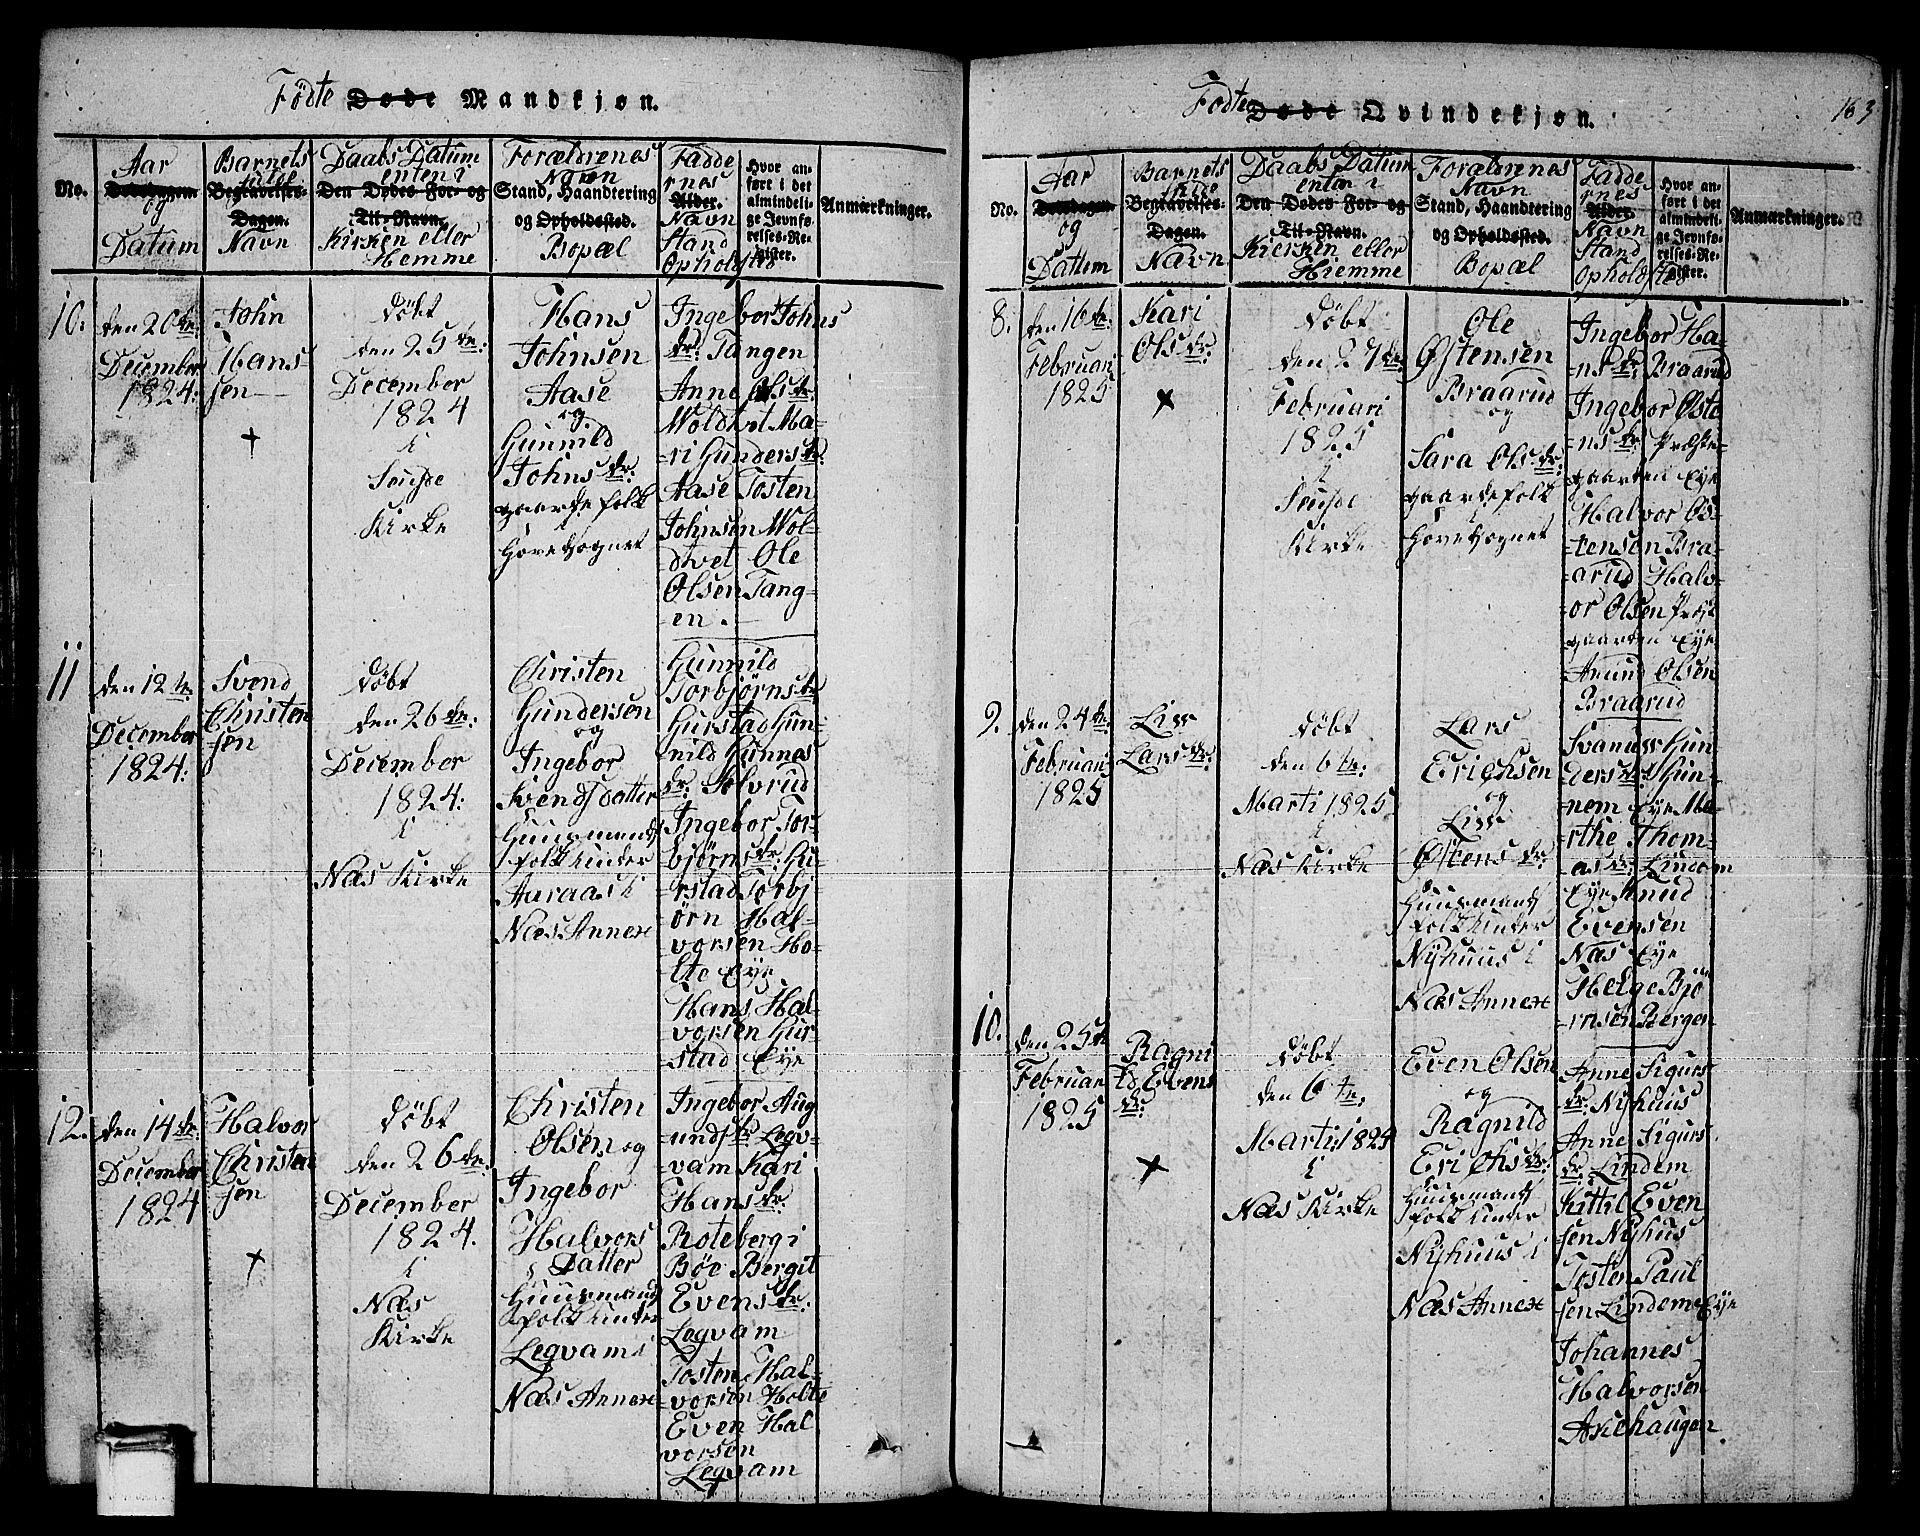 Fødte Døde Mandkjøn.
No.
Aar
Dødsdagen
og
Datum
Barnets
fulde
Begravelses-
Dagen.
Navn
Daabs Datum
enten i
Den Dødes For- og
Til-Navn.
Kirken eller
Hiemme
Forældrenes
Navn
Stand, Haandtering
og Opholdssted.
Bopæl
Fadde
rnes
Alder.
Navn
Stand
Opholdsted
Hvor an-
ført i det
almindeli-
ge Jevnfø-
relses-Re-
gister.
Anmærkninger.
10.
den 20de:
December
1824:
John
Hans-
sen
+
Døbt
den 25de:
December
1824
i
Souhde
Kirke
Hans
Johnsen
Aase
og
Gunnild
Johnsdr:
gaardefolk
HoveSognet
Ingebor Johns
dr: Tangen
Anne Olsdr:
Woldvet Ma-
ri Gundersdr:
Aase Tosten
Johnsen Wol-
dvet Ole
Olsen Tang-
en.
11
den 12te
December
1824:
Svend
Christen
sen
Døbt
den 26de:
December
1824:
i
Næs Kirke
Christen
Gundersen
og
Ingebor
Svendsdatter
Huusmands
folk under
Aaraas i
Næs Annex
Gunnild
Torbjørnsdr
Gurstad Gun-
nild Gunnes
dr: Solvrud
Ingebor Tor-
bjørnsdr: Gu-
rstad Torbj-
ørn Hal-
vorsen Ho-
lte Eye
Hans Hal-
vorsen Gur-
stad Eye
12.
den 14de:
December
1824
Halvor
Christen
sen
+
Døbt
den 26de:
December
1824.
i
Næs
Kirke
Christen
Olsen og
Ingebor
Halvors
Datter
Huusmands
folk under
Legvam i
Næs Annex
Ingebor Aug
undsdr Legv-
vam Kari
Hansdr:
Roteberg i
Bøe Bergit
Evensdr:
Legvam
Tosten Hal-
vorson Holte
Even Hal
vorson
Legvam
Fødte Døde Qvindekjøn.
163
No.
Aar
Dødsdagen
og
Datum
Barnets
fulde
Begravelses-
Dagen.
Navn
Daabs Datum
enten i
Den Dødes For- og
Til-Navn.
Kirken eller
Hiemme
Forældrenes
Navn
Stand, Haandtering
og Opholdssted.
Bopæl
Fadde
rnes
Alder.
Navn
Stand
Opholdsted
Hvor an-
ført i det
almindeli-
ge Jevnfø-
relses-Re-
gister.
Anmærkninger.
8.
den 16de:
Februari
1825
Kari
Olsdr:
+
Døbt
den 27de:
Februari
1825
i
Souhde
Kirke
Ole
Østensen
Braarud
og
Sara Olsdr:
gaardefolk
i
HoveSognet
Ingebor Ha-
nsdr: Braarud
Ingebor Øste
nsdr Præste-
gaarden Eye
Halvor Øs-
tensen Bra-
arud Halv-
or Olsen Præst
gaarden Eye
Amund Olsen
Braarud
9.
den 24de:
Februari
1825
Liss
Larsdr:
Døbt
den 6te:
Marti 1825
i
Næs Kirke
Lars
Erichsen
og
Liss
Østensdr:
Huusmands
folk under
Nyhuus i
Næs Annex
Svanuss Gun
dersdr Gun-
nem Eye Ma-
rthe Thom-
asdr: Lindem
Eye Knud
Evensen
Næs Eye
Helge Bjø
rnsen Bergen
10.
den 25de
Februari
1825
Ragni
ld Evens
dr:
+
Døbt
den 6te,
Marti: 1824
i
Næs Kirke
Even Olsen
og
Ragnild
Erichsdr:
Huusmands
folk under
Nyhuus i
Næs Annex
Anne Sigurs
dr: Nyhuus
Anne Sigurs
dr: Lindem
Kittil Even
sen Nyhus
Tosten Paul
sen Lindem Eye
Johannes
Halvorsen
Axehaugen.